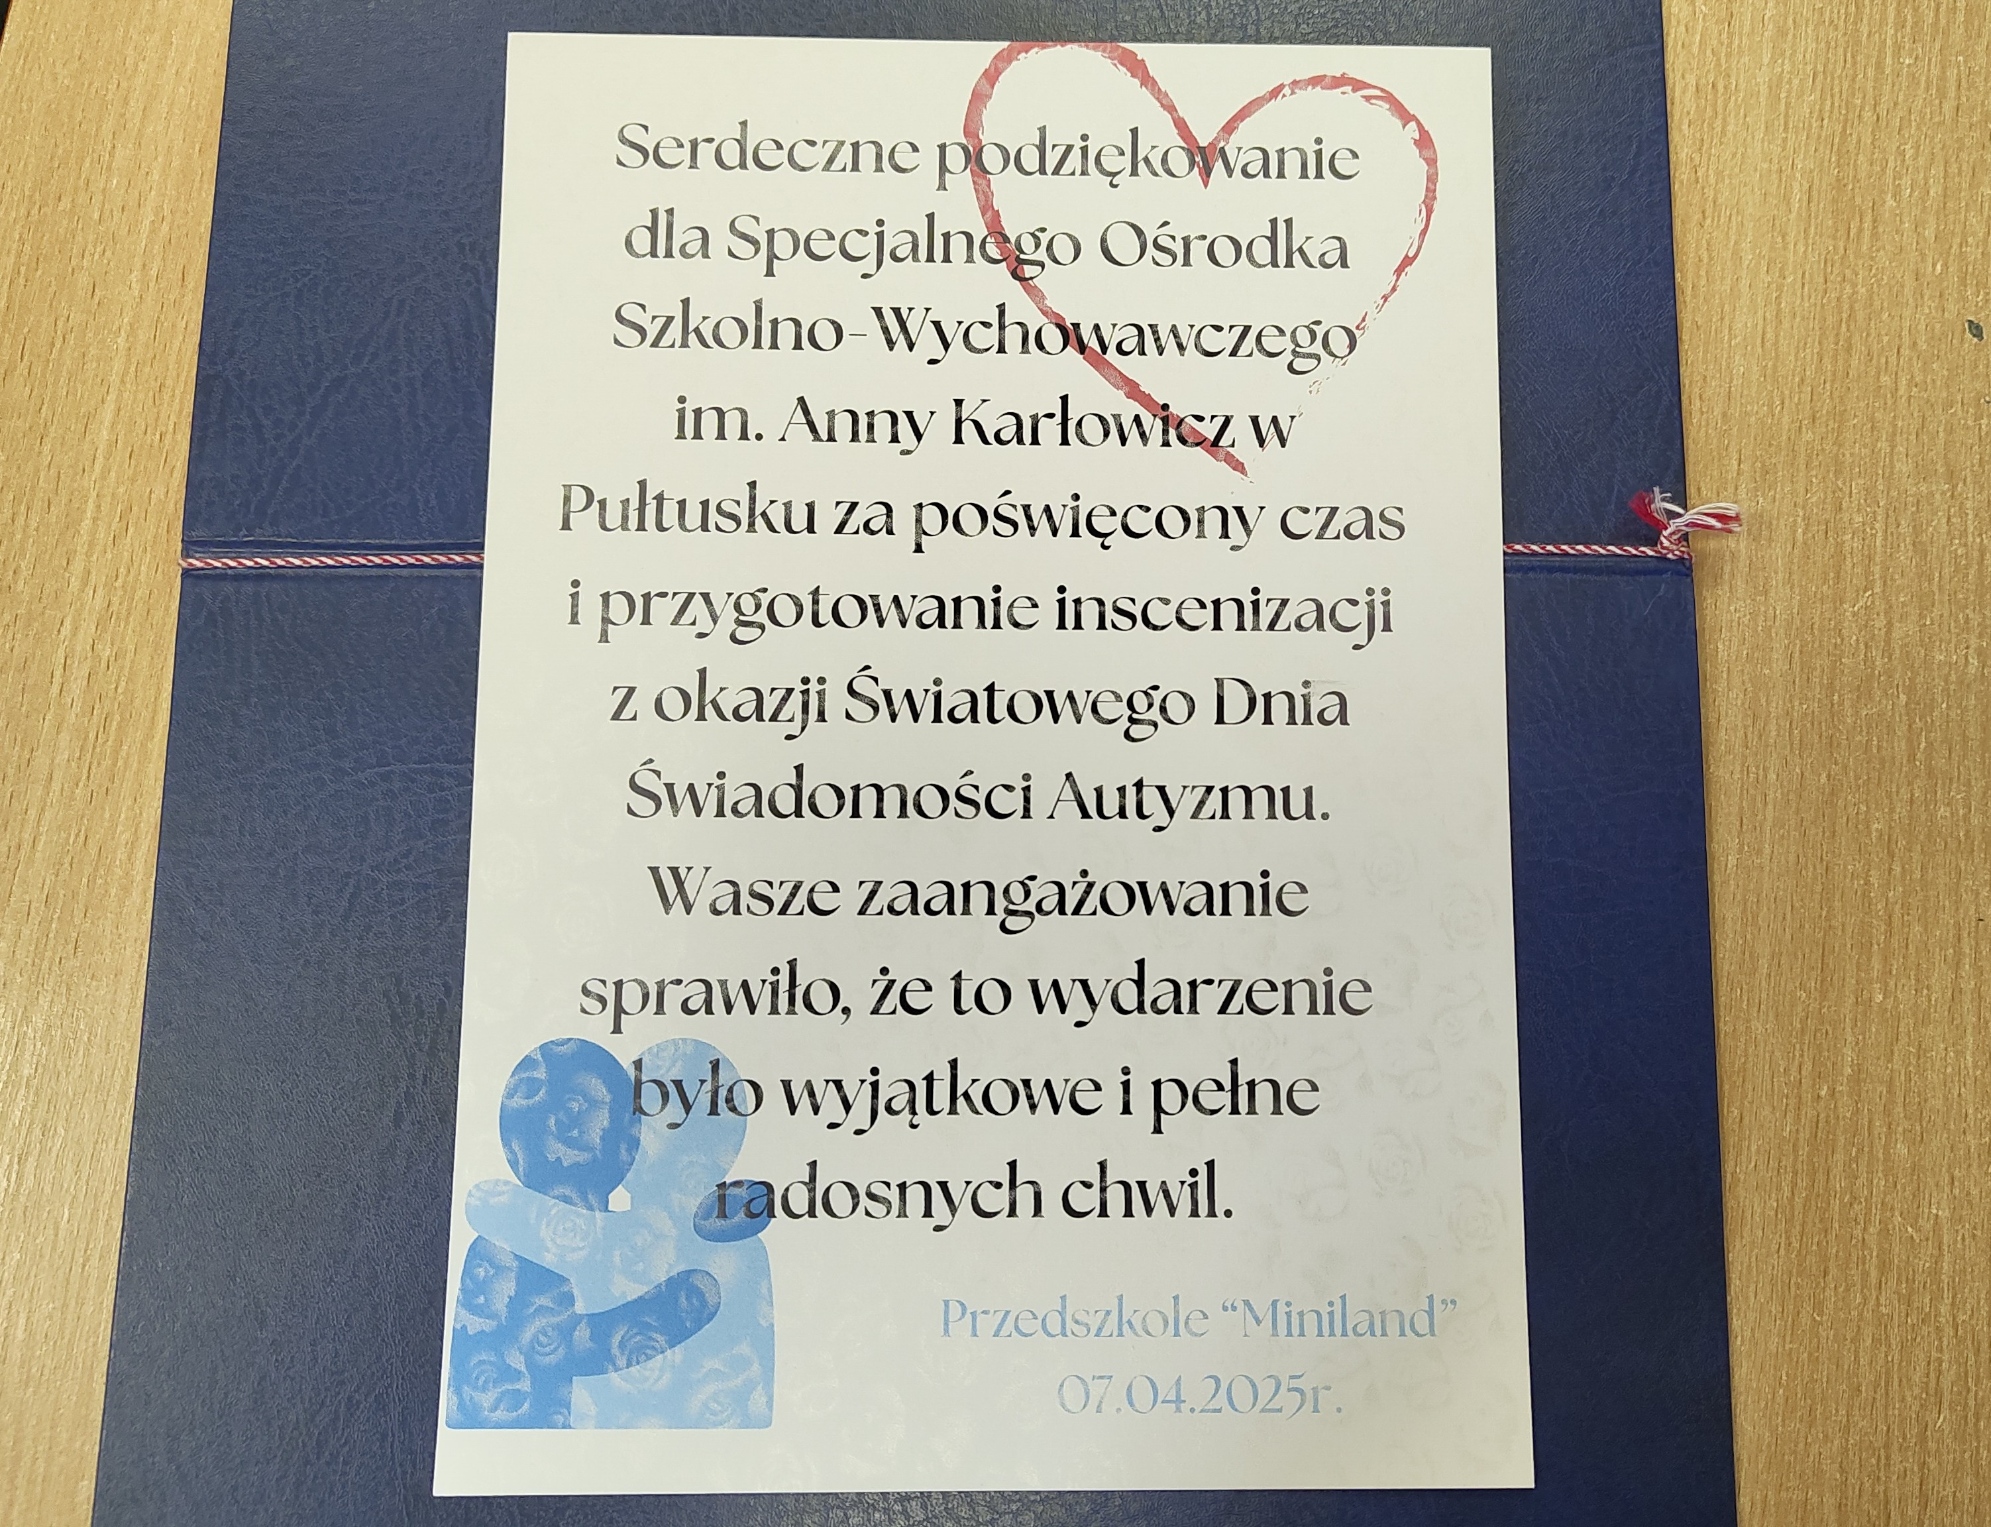 Serdeczne podziękowanie
dla Specjalnego Ośrodka
Szkolno-Wychowawczego
im. Anny Karłowicz w
Pułtusku za poświęcony czas
i przygotowanie inscenizacji
z okazji Światowego Dnia
Świadomości Autyzmu.
Wasze zaangażowanie
sprawiło, że to wydarzenie
było wyjątkowe i pełne
radosnych chwil.
Przedszkole “Miniland”
07.04.2025r.